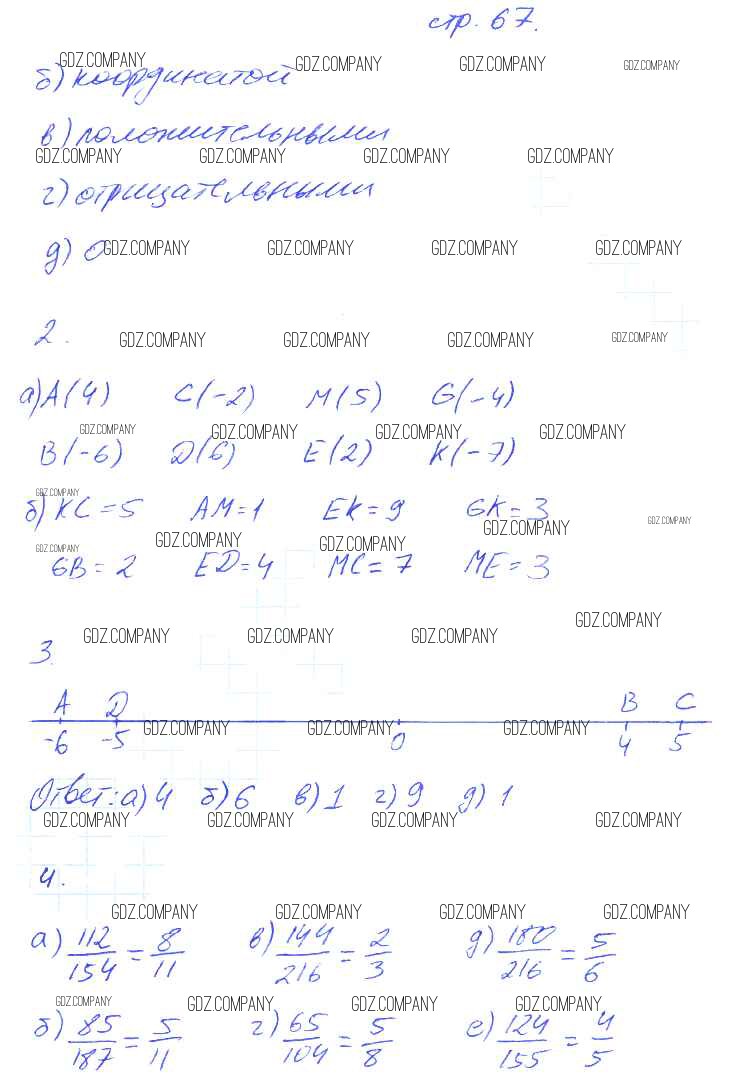 стр. 67.
GDZ.COMPANY GDZ.COMPANY GDZ.COMPANY GDZ.COMPANY
б) координатой
в) положительными
GDZ.COMPANY GDZ.COMPANY GDZ.COMPANY GDZ.COMPANY
г) отрицательными
д) 0
GDZ.COMPANY GDZ.COMPANY GDZ.COMPANY GDZ.COMPANY
2.
GDZ.COMPANY GDZ.COMPANY GDZ.COMPANY GDZ.COMPANY
а) A(4) C(-2) M(5) G(-4)
GDZ.COMPANY GDZ.COMPANY GDZ.COMPANY GDZ.COMPANY
B(-6) D(6) E(2) K(-7)
GDZ.COMPANY
б) KC = 5 AM = 1 EK = 9 GK = 3
GDZ.COMPANY GDZ.COMPANY
GDZ.COMPANY GDZ.COMPANY GDZ.COMPANY
GB = 2 ED = 4 MC = 7 ME = 3
GDZ.COMPANY
GDZ.COMPANY GDZ.COMPANY GDZ.COMPANY
3.
A D B C
GDZ.COMPANY GDZ.COMPANY GDZ.COMPANY
-6 -5 0 4 5
Ответ: а) 4 б) 6 в) 1 г) 9 д) 1
GDZ.COMPANY GDZ.COMPANY GDZ.COMPANY GDZ.COMPANY
4.
GDZ.COMPANY GDZ.COMPANY GDZ.COMPANY GDZ.COMPANY
а) 112/154 = 8/11 в) 144/216 = 2/3 д) 180/216 = 5/6
GDZ.COMPANY GDZ.COMPANY GDZ.COMPANY GDZ.COMPANY
б) 85/187 = 5/11 г) 65/104 = 5/8 е) 124/155 = 4/5